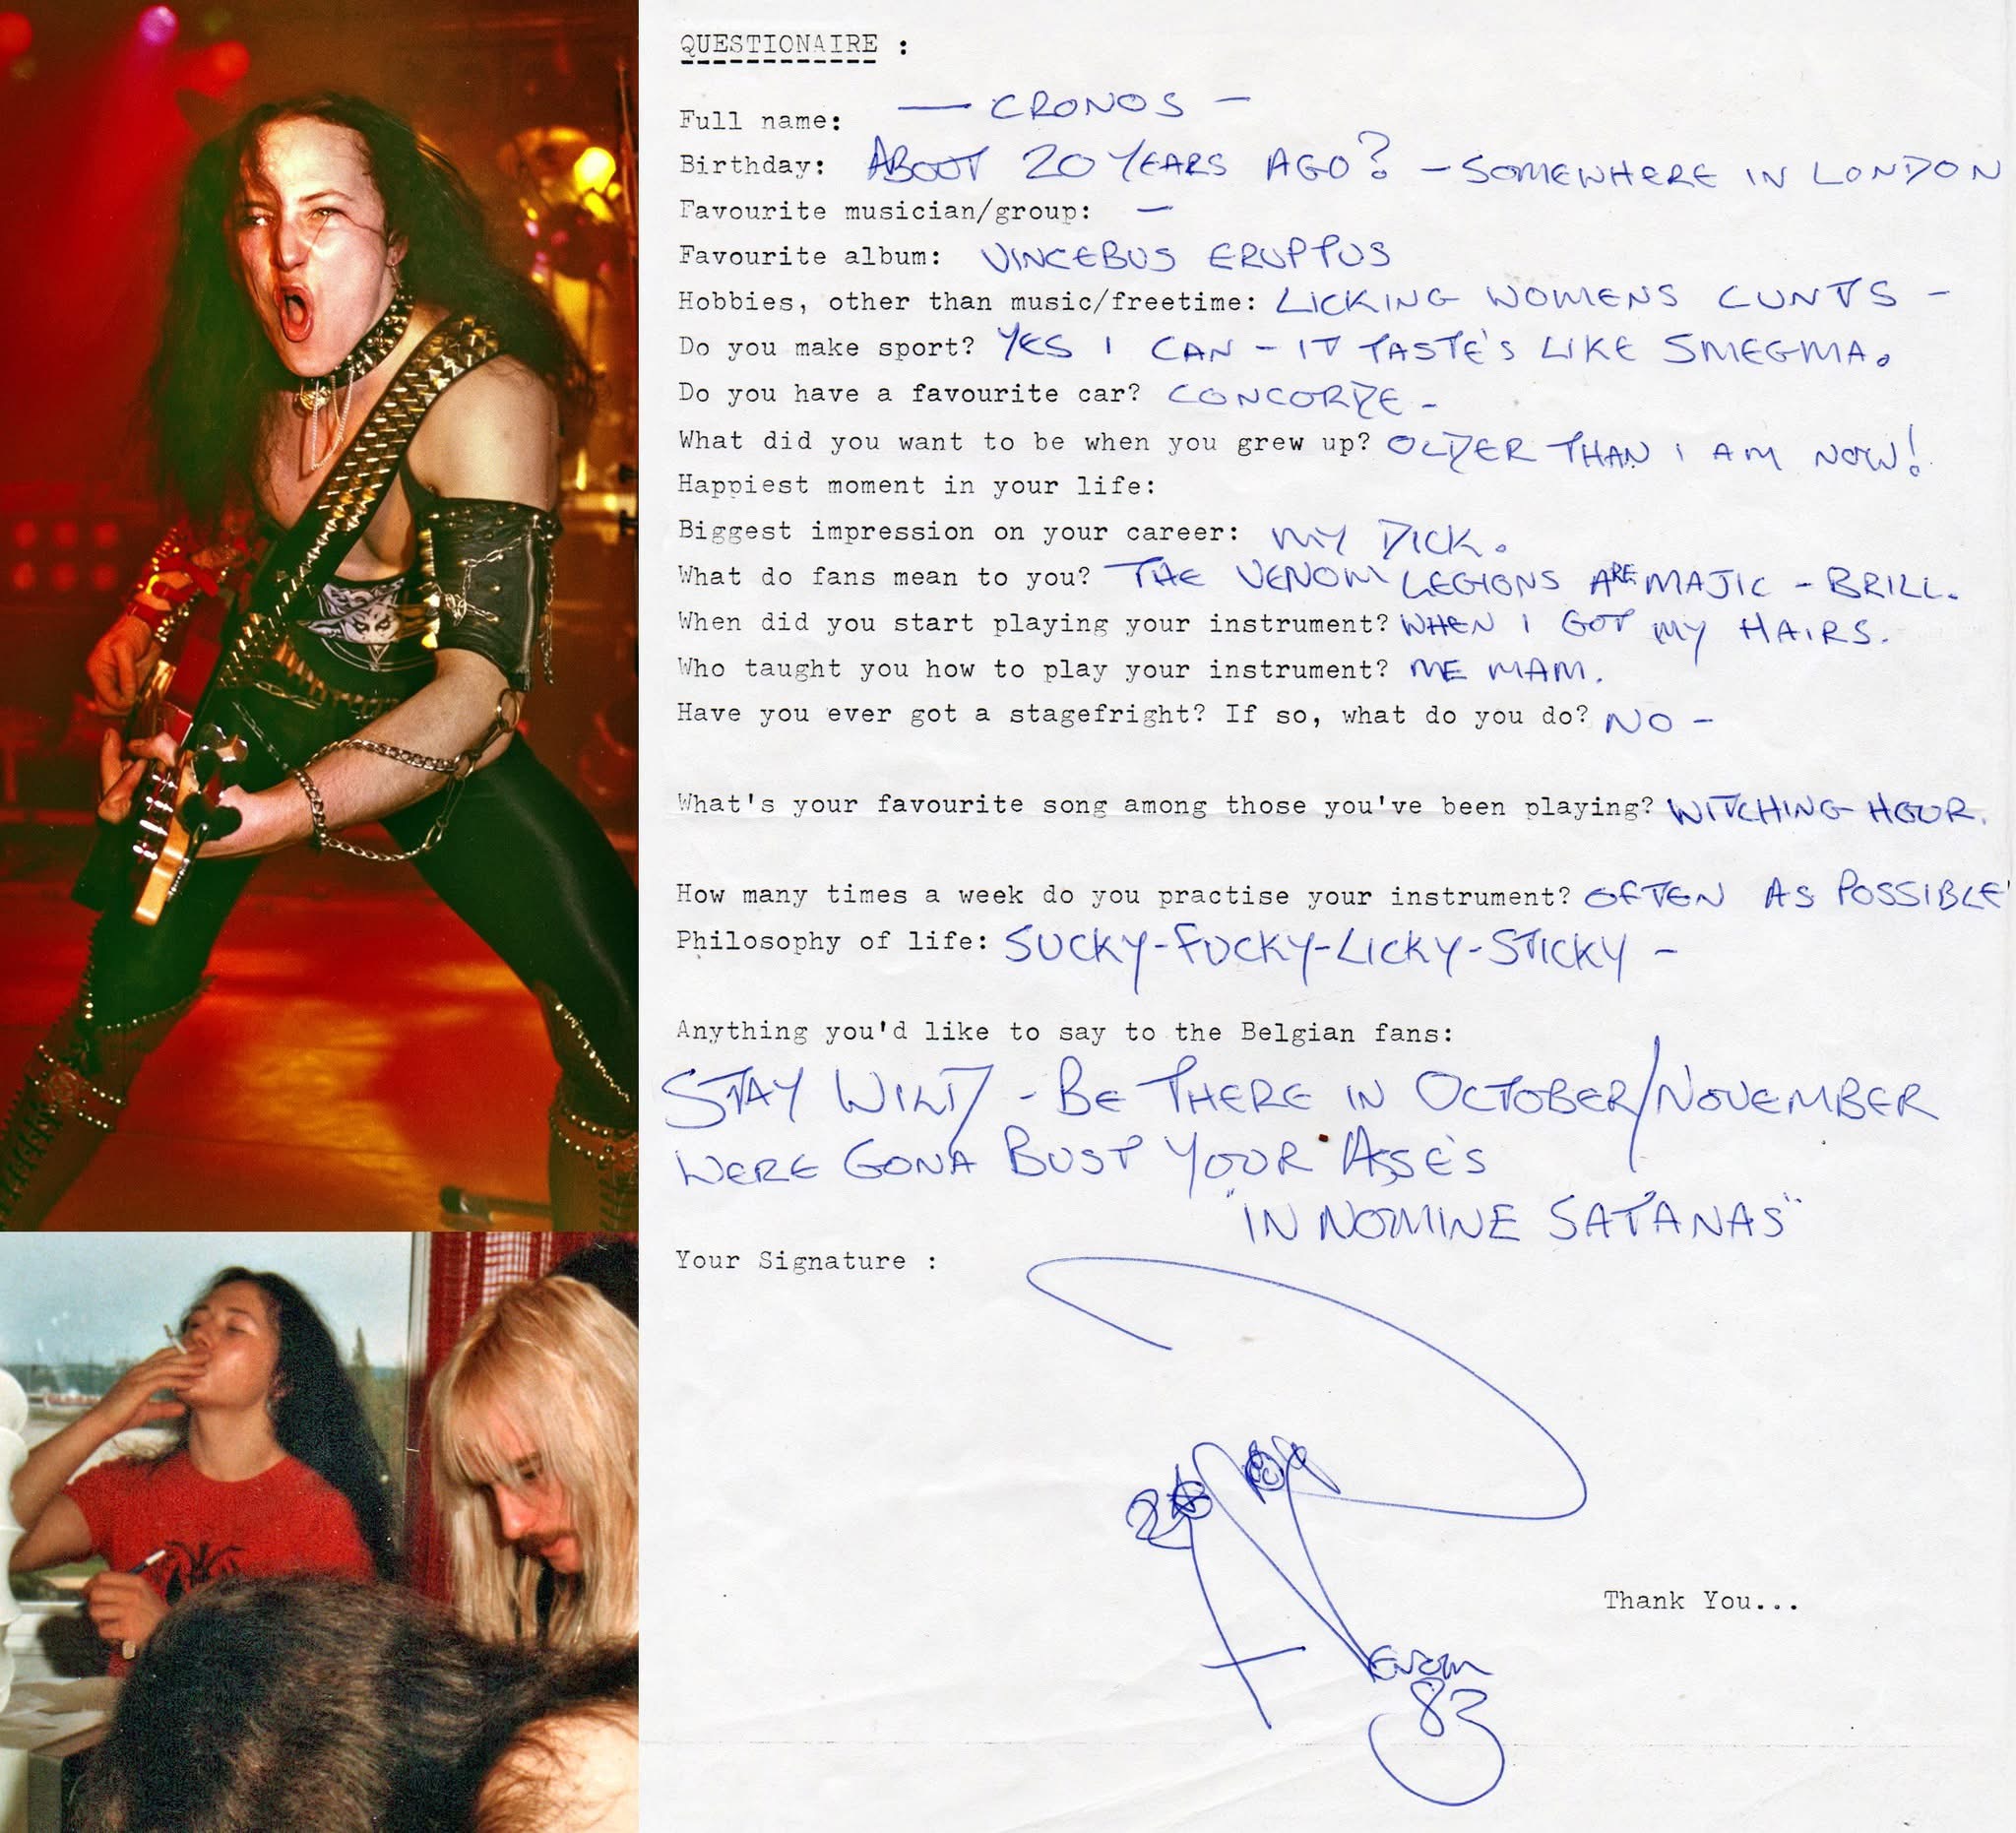 QUESTIONAIRE :
Full name: — CRONOS —
Birthday: ABOUT 20 YEARS AGO? - SOMEWHERE IN LONDON
Favourite musician/group: —
Favourite album: VINCEBUS ERUPTUS
Hobbies, other than music/freetime: LICKING WOMENS CUNTS -
Do you make sport? YES I CAN - IT TASTE'S LIKE SMEGMA.
Do you have a favourite car? CONCORDE -
What did you want to be when you grew up? OLDER THAN I AM NOW!
Happiest moment in your life:
Biggest impression on your career: MY DICK.
What do fans mean to you? THE VENOM LEGIONS ARE MAJIC - BRILL.
When did you start playing your instrument? WHEN I GOT MY HAIRS.
Who taught you how to play your instrument? ME MAM.
Have you ever got a stagefright? If so, what do you do? NO -
What's your favourite song among those you've been playing? WITCHING HOUR.
How many times a week do you practise your instrument? OFTEN AS POSSIBLE'
Philosophy of life: SUCKY-FUCKY-LICKY-STICKY -
Anything you'd like to say to the Belgian fans:
STAY WILD - BE THERE IN OCTOBER/NOVEMBER
WERE GONA BUST YOUR ASSE'S
"IN NOMINE SATANAS"
Your Signature :
Thank You...
Venom
83